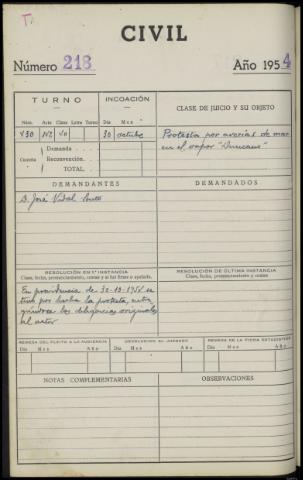 CIVIL
Número 218 Año 1954
TURNO INCOACIÓN CLASE DE JUICIO Y SU OBJETO
Núm. Acta Clase Letra Torno Día Mes
430 30 octubre Protesta por averías de mar
en el vapor "Duncano"
Cuantía Demanda
Reconvención.
TOTAL.
DEMANDANTES DEMANDADOS
D. José Vidal
RESOLUCIÓN EN 1ª INSTANCIA RESOLUCIÓN DE ÚLTIMA INSTANCIA
Clase, fecha, pronunciamiento, costas y si fué firme o apelada. Clase, fecha, pronunciamiento y costas
En providencia de 30-10-1954 se
tuvo por hecha la protesta,
las diligencias originales
al actor
REMESA DEL PLEITO A LA AUDIENCIA DEVOLUCIÓN AL JUZGADO REMESA DE LA FICHA ESTADÍSTICA
Día Mes Año Día Mes Año Día Mes Año
NOTAS COMPLEMENTARIAS OBSERVACIONES